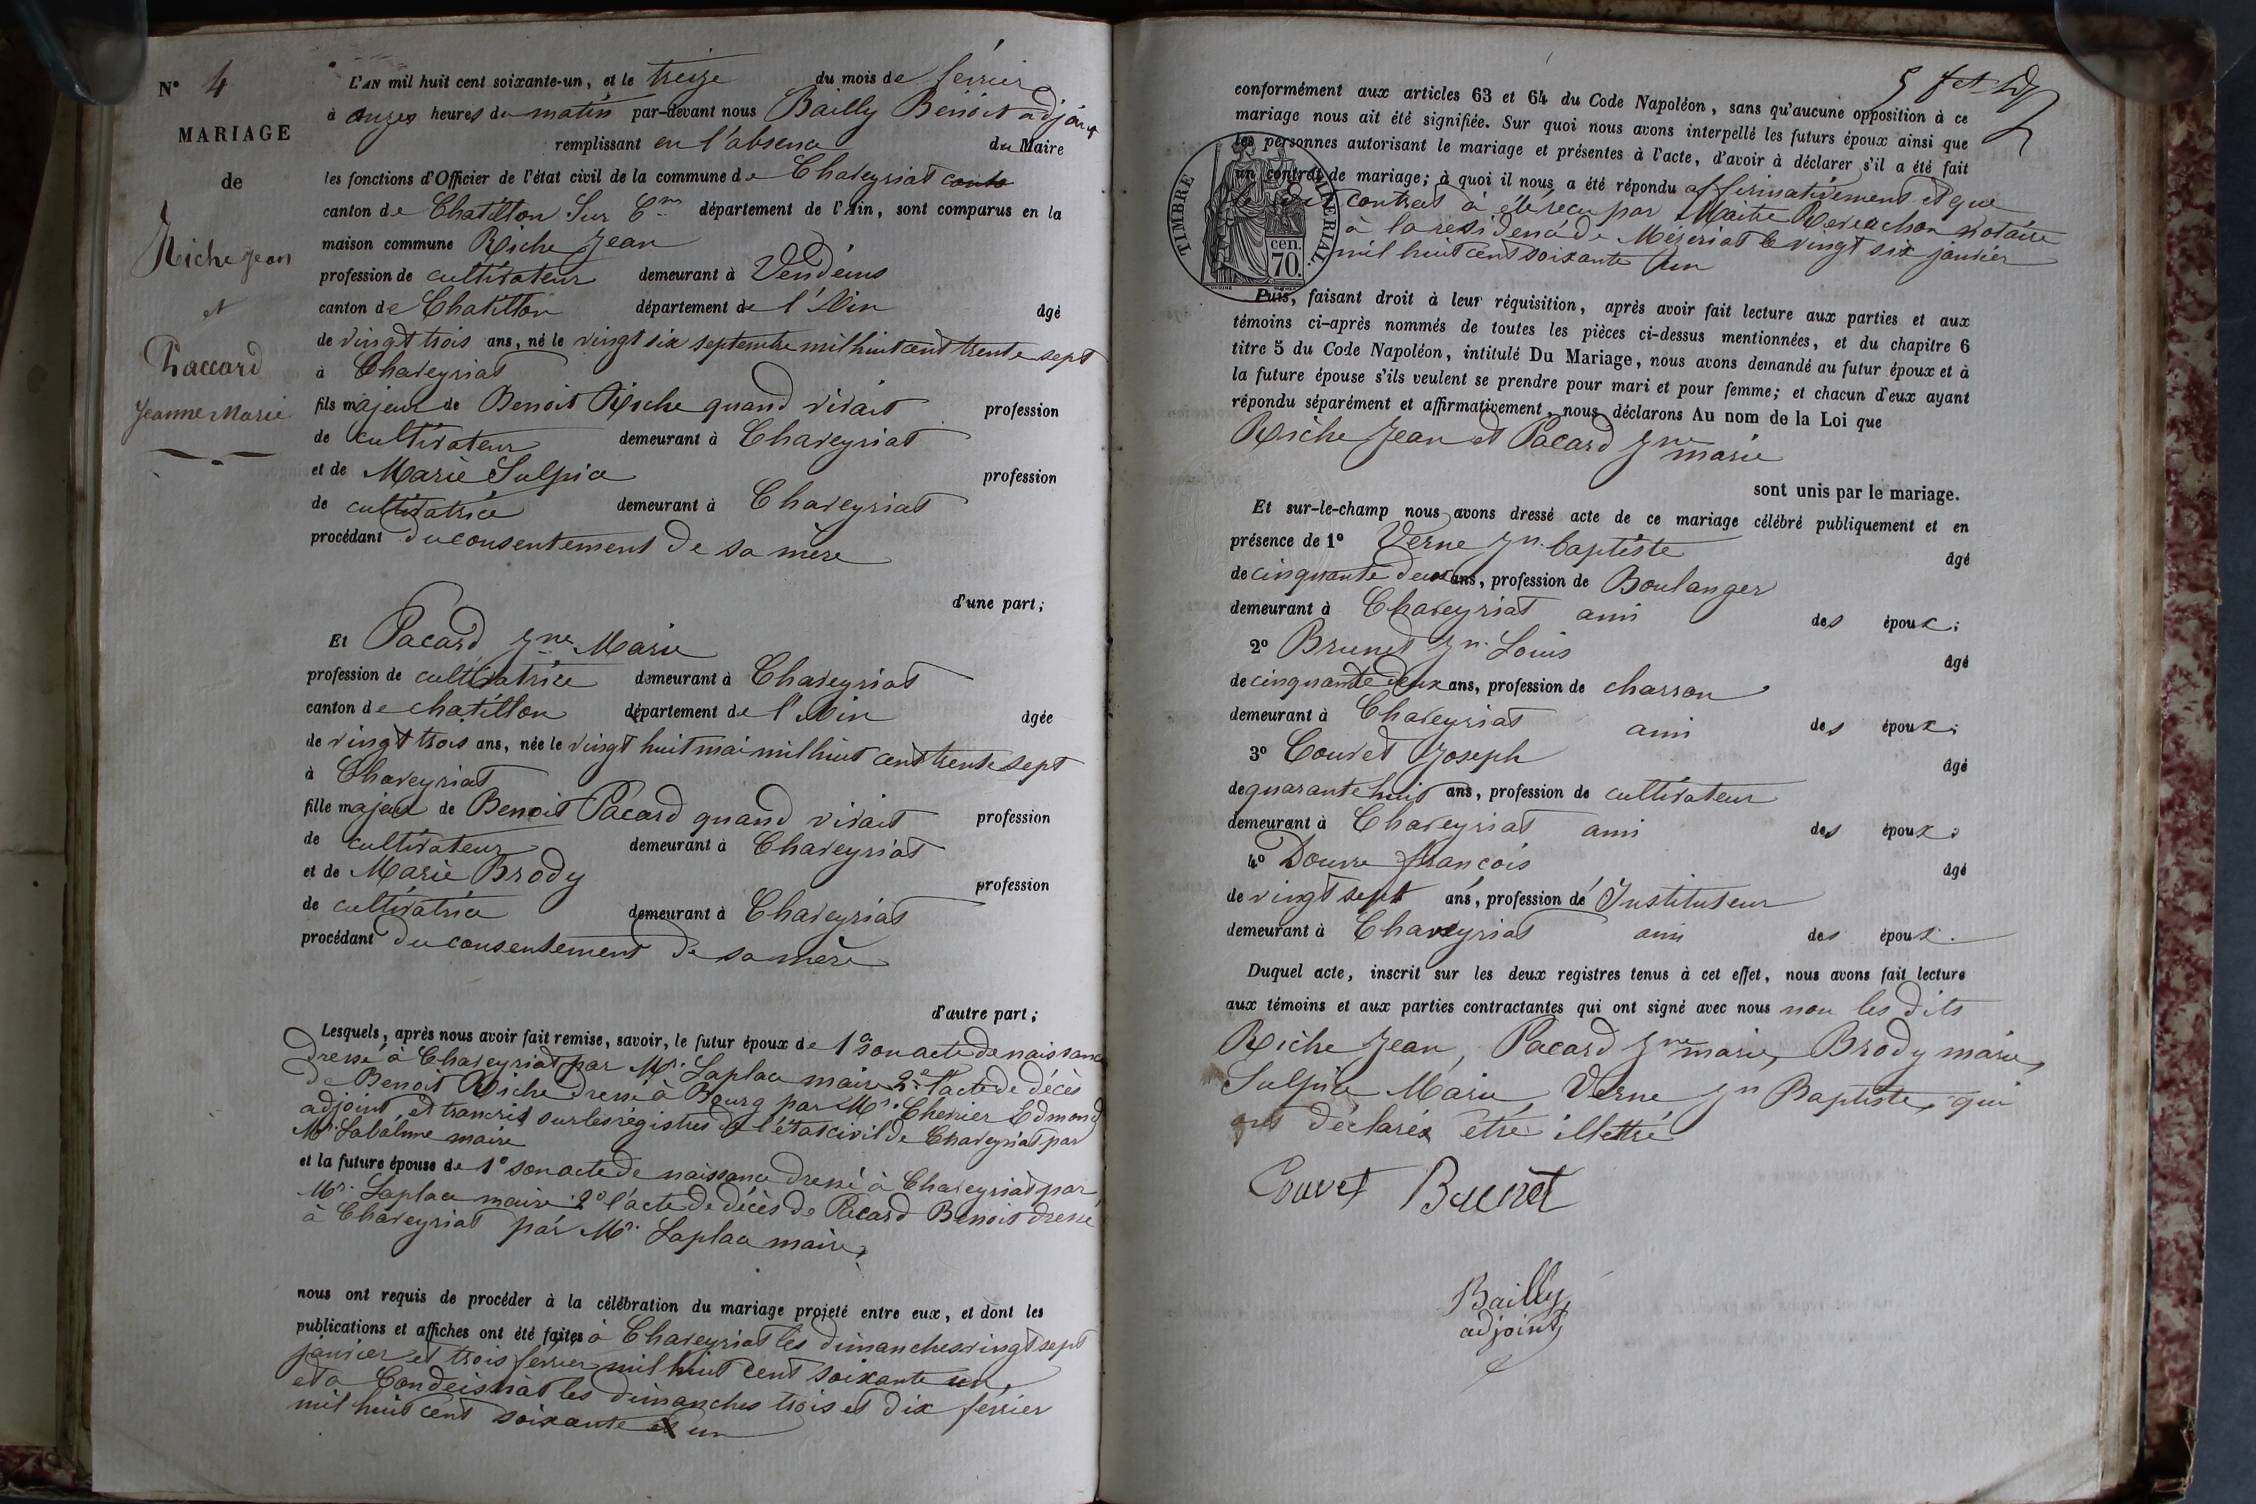 N° 4
MARIAGE
de
Riche Jean
et
Paccard
Jeanne Marie
L'AN mil huit cent soixante-un, et le treize du mois de février
à onzes heures du matin par-devant nous Bailly Benoit adjoint
remplissant en l'absence du Maire
les fonctions d'Officier de l'état civil de la commune de Chaveyriat
canton de Chatillon Sur Cne département de l'Ain, sont comparus en la
maison commune Riche Jean
profession de cultivateur demeurant à Vendeins
canton de Chatillon département de l'Ain âgé
de vingt trois ans, né le vingt six septembre mil huit cent trente sept
à Chaveyriat
fils majeur de Benoit Riche quand vivait profession
de cultivateur demeurant à Chaveyriat
et de Marie Sulpice profession
de cultivatrice demeurant à Chaveyriat
procédant du consentement de sa mère
d'une part;
Et Pacard Jne Marie
profession de cultivatrice demeurant à Chaveyriat
canton de chatillon département de l'Ain âgée
de vingt trois ans, née le vingt huit mai mil huit cent trente sept
à Chaveyriat
fille majeur de Benoit Pacard quand vivait profession
de cultivateur demeurant à Chaveyriat
et de Marie Brody profession
de cultivatrice demeurant à Chaveyriat
procédant du consentement de sa mère
d'autre part;
Lesquels, après nous avoir fait remise, savoir, le futur époux de 1° son acte de naissance
dressé à Chaveyriat par Mr. Laplace maire 2° l'acte de décès
de Benoit Riche dressé à Bourg par Mr. Chenier Edmond
adjoint, et trancrit sur les régistres de l'état civil de Chaveyriat par
Mr. Labalme maire
et la future épouse de 1° son acte de naissance dressé à Chaveyriat par
Mr. Laplace maire 2° l'acte de décès de Pacard Benoit dressé
à Chaveyriat par Mr. Laplace maire,
nous ont requis de procéder à la célébration du mariage projeté entre eux, et dont les
publications et affiches ont été faites à Chaveyriat les dimanches vingt sept
janvier et trois fevrier mil huit cent soixante un,
et a Condeissiat les dimanches trois et dix février
mil huit cent soixante et un
conformément aux articles 63 et 64 du Code Napoléon, sans qu'aucune opposition à ce
mariage nous ait été signifiée. Sur quoi nous avons interpellé les futurs époux ainsi que
les personnes autorisant le mariage et présentes à l'acte, d'avoir à déclarer s'il a été fait
un contrat de mariage; à quoi il nous a été répondu affirmativement et que
le dit contrat à été reçu par Maitre notaire
à la residence de Mézériat le vingt six janvier
mil huit cent soixante un
TIMBRE IMPERIAL.
cen.
70.
Puis, faisant droit à leur réquisition, après avoir fait lecture aux parties et aux
témoins ci-après nommés de toutes les pièces ci-dessus mentionnées, et du chapitre 6
titre 5 du Code Napoléon, intitulé Du Mariage, nous avons demandé au futur époux et à
la future épouse s'ils veulent se prendre pour mari et pour femme; et chacun d'eux ayant
répondu séparément et affirmativement, nous déclarons Au nom de la Loi que
Riche Jean et Pacard Jne marie
sont unis par le mariage.
Et sur-le-champ nous avons dressé acte de ce mariage célébré publiquement et en
présence de 1° Verne Jn. baptiste âgé
de cinquante deux ans, profession de Boulanger
demeurant à Chaveyriat ami des époux;
2° Brunet Jn. Louis âgé
de cinquante deux ans, profession de charron
demeurant à Chaveyriat ami des époux;
3° Couvet Joseph âgé
de quarante huit ans, profession de cultivateur
demeurant à Chaveyriat ami des époux;
4° Douvre françois âgé
de vingt sept ans, profession de Instituteur
demeurant à Chaveyriat ami des époux.
Duquel acte, inscrit sur les deux registres tenus à cet effet, nous avons fait lecture
aux témoins et aux parties contractantes qui ont signé avec nous non les dits
Riche Jean, Pacard Jne marie, Brody marie,
Sulpice Marie, Verne Jn Baptiste, qui
ont déclarés être illettré
Couvet Brunet
Bailly
adjoint